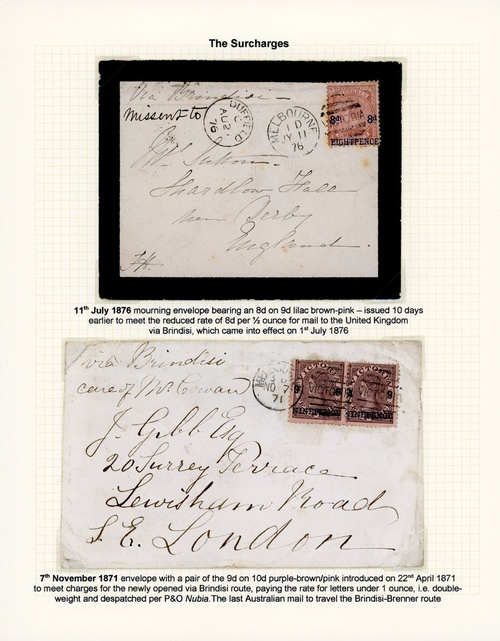 The Surcharges
Via Brindisi
Missent to
DUFFIELD
C
AU 2
76
MELBOURNE
1 D
JY 11
76
8d 8d
EIGHTPENCE
Sutton
Shardlow Hall
near Derby
England
11th July 1876 mourning envelope bearing an 8d on 9d lilac brown-pink – issued 10 days
earlier to meet the reduced rate of 8d per ½ ounce for mail to the United Kingdom
via Brindisi, which came into effect on 1st July 1876
via Brindisi
care of Mr Cowan
NO 7
71
VICTORIA
NINEPENCE
J. Gibb Esq
20 Surrey Terrace
Lewisham Road
S.E. London
7th November 1871 envelope with a pair of the 9d on 10d purple-brown/pink introduced on 22nd April 1871
to meet charges for the newly opened via Brindisi route, paying the rate for letters under 1 ounce, i.e. double-
weight and despatched per P&O Nubia.The last Australian mail to travel the Brindisi-Brenner route